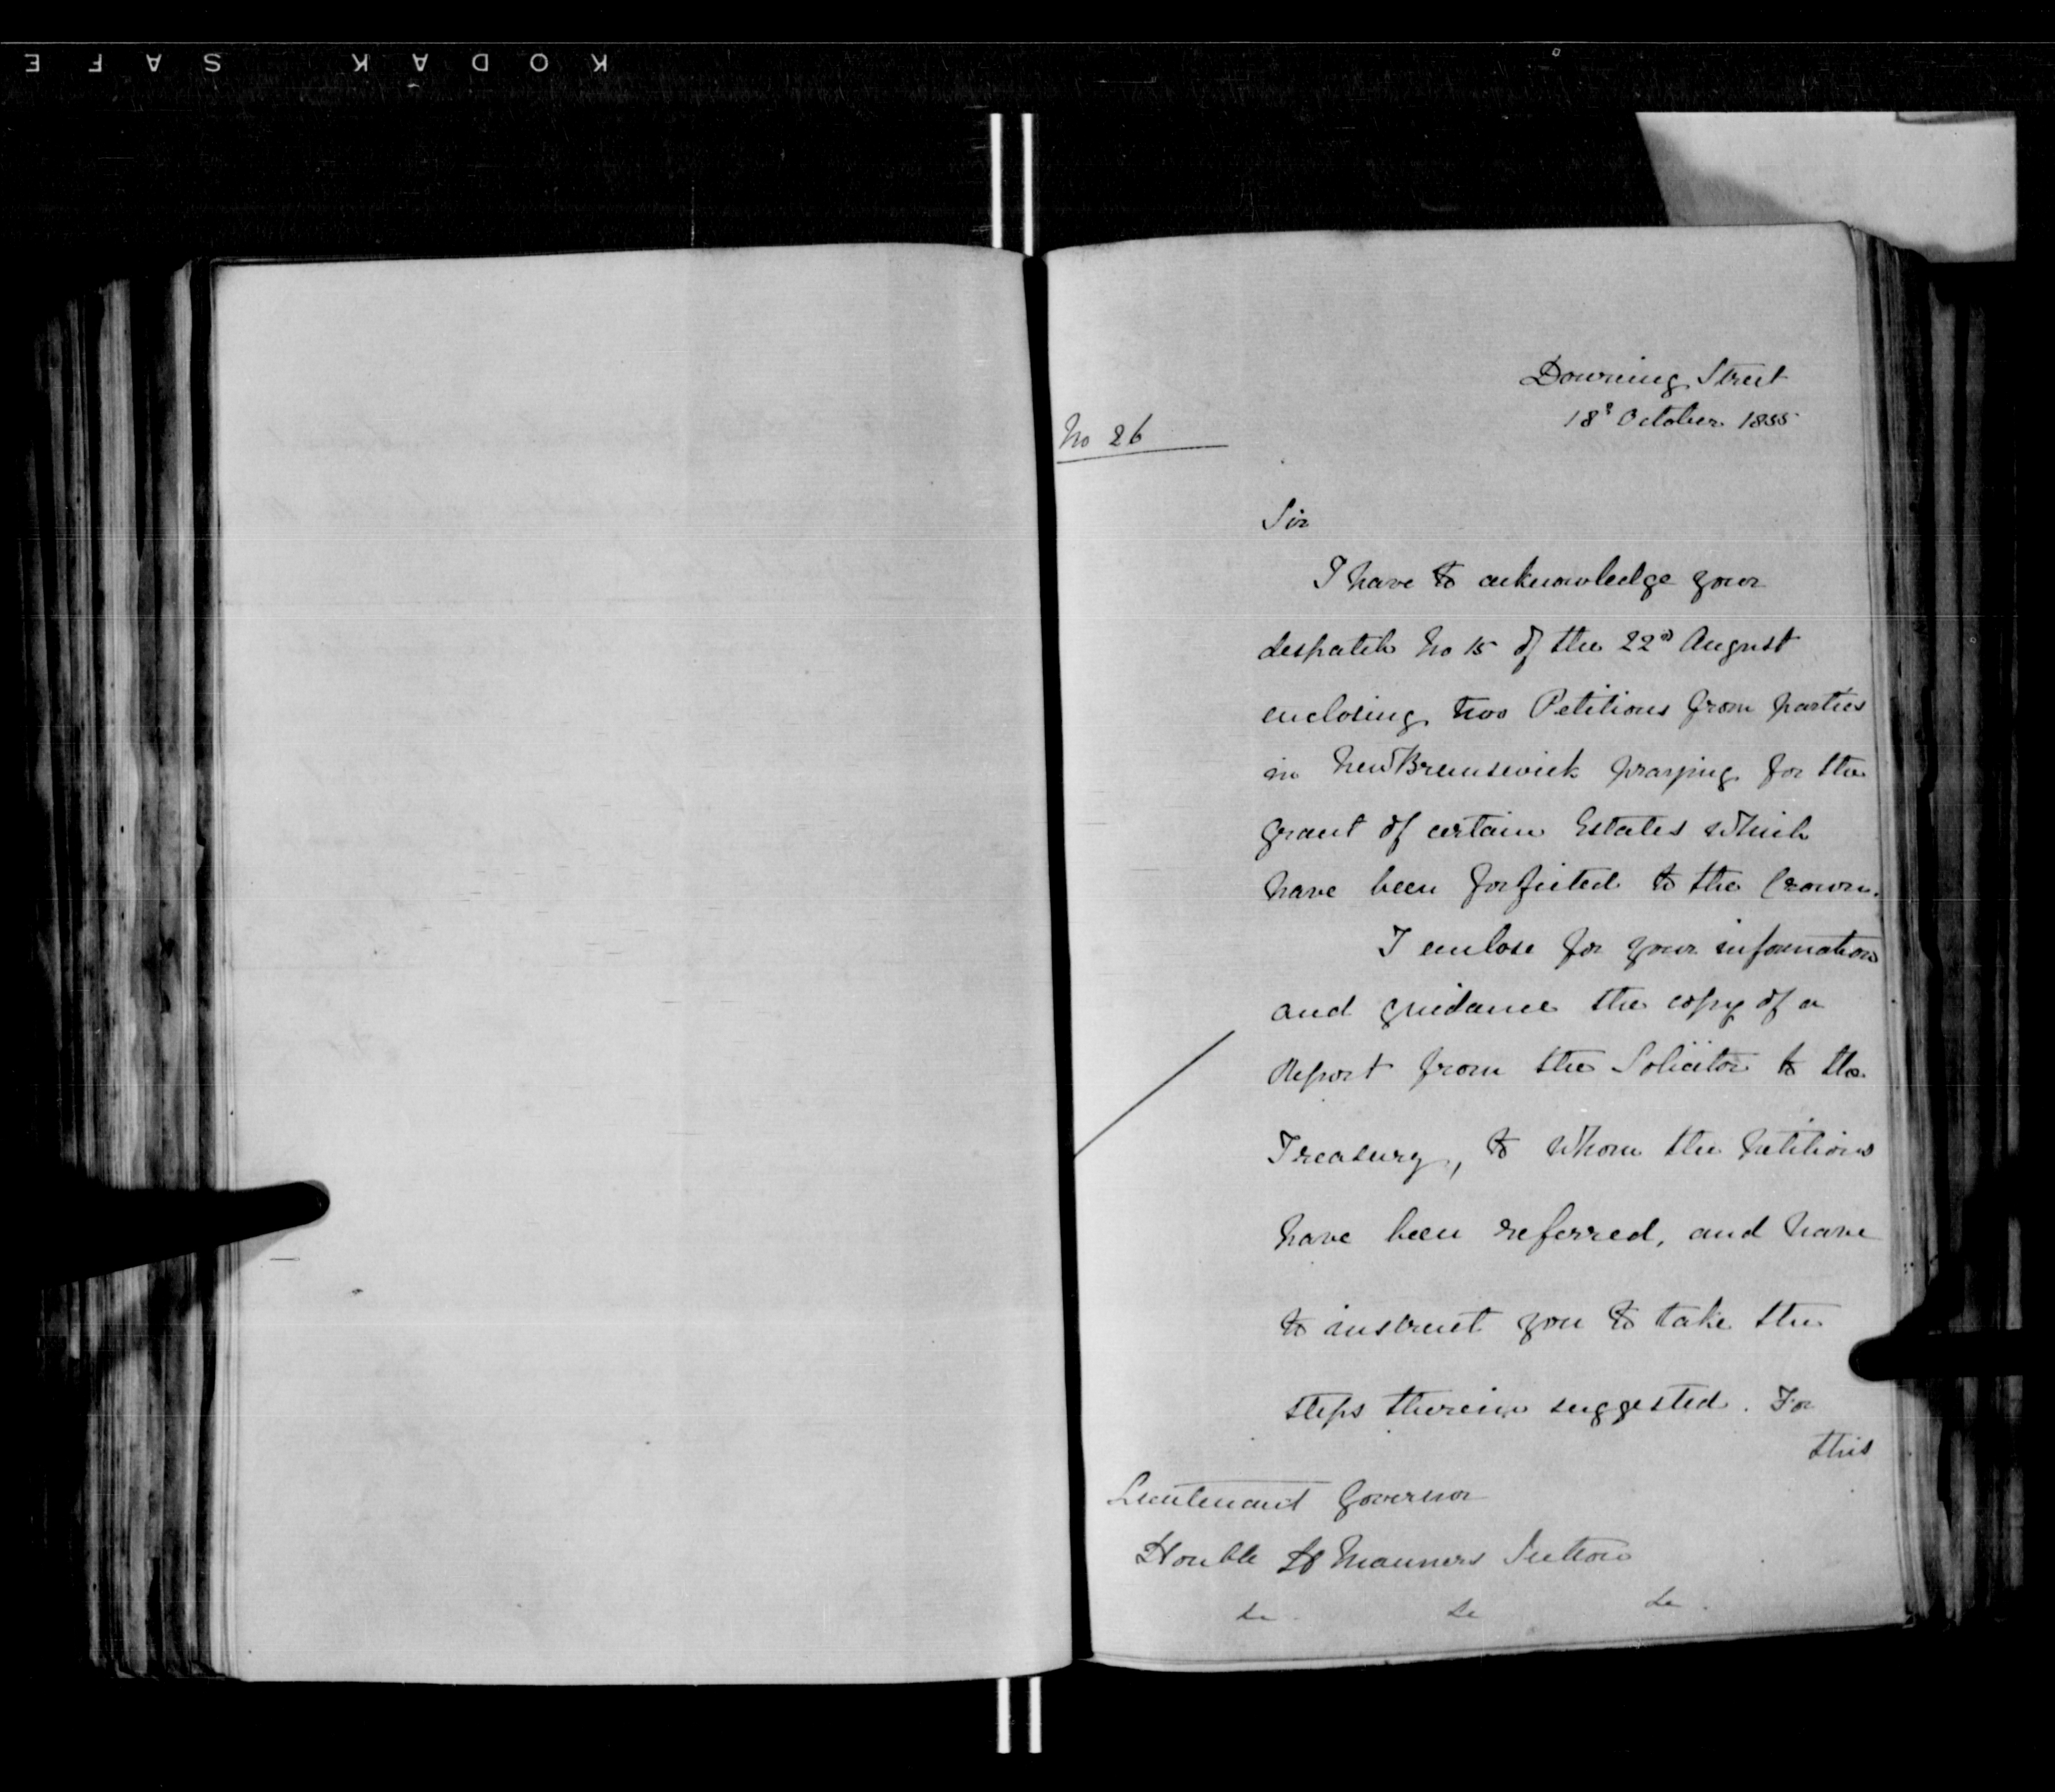 KODAK SAFE
Downing Street
18th October 1855
No 26
Sir
I have to acknowledge your
despatch No 15 of the 22d August
enclosing two Petitions from parties
in New Brunswick praying for the
grant of certain Estates which
have been forfeited to the Crown.
I enclose for your information
and guidance the copy of a
Report from the Solicitor to the
Treasury, to whom the petitions
have been referred, and have
to instruct you to take the
steps therein suggested. For
this
Lieutenant Governor
Honble H Manners Sutton
&c &c &c